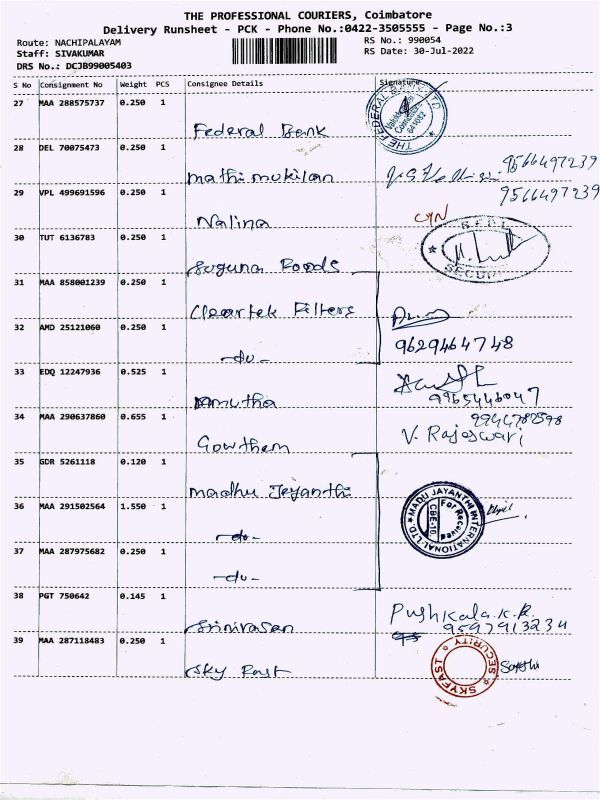 THE PROFESSIONAL COURIERS, Coimbatore
Delivery Runsheet - PCK - Phone No.:0422-3505555 - Page No.:3
Route: NACHIPALAYAM
RS No.: 990054
Staff: SIVAKUMAR
RS Date: 30-Jul-2022
DRS No.: DCJB99005403
S No Consignment No Weight PCS Consignee Details Signature
27 MAA 288575737 0.250 1
THE FEDERAL BANK LTD
Federal Bank
28 DEL 70075473 0.250 1
mathimukilan
9566497239
29 VPL 499691596 0.250 1
9566497239
Nalina
30 TUT 6136783 0.250 1
Suguna Foods
SECUR
31 MAA 858001239 0.250 1
Cleartek Filters
32 AMD 25121060 0.250 1
9629464748
-do-
33 EDQ 12247936 0.525 1
Amutha
9965446047
34 MAA 290637860 0.655 1
9944782598
V. Rajeswari
Gowthem
35 GDR 5261118 0.120 1
madhu Jeyanthi
36 MAA 291502564 1.550 1
MADU JAYANTHI INTERNATIONAL LTD.
For Received
CBE-10.
-do-
37 MAA 287975682 0.250 1
-do-
38 PGT 750642 0.145 1
Pushkala.K.R.
9597913234
Srinivasan
39 MAA 287118483 0.250 1
SKYFAST SECURITY
Sky Fast